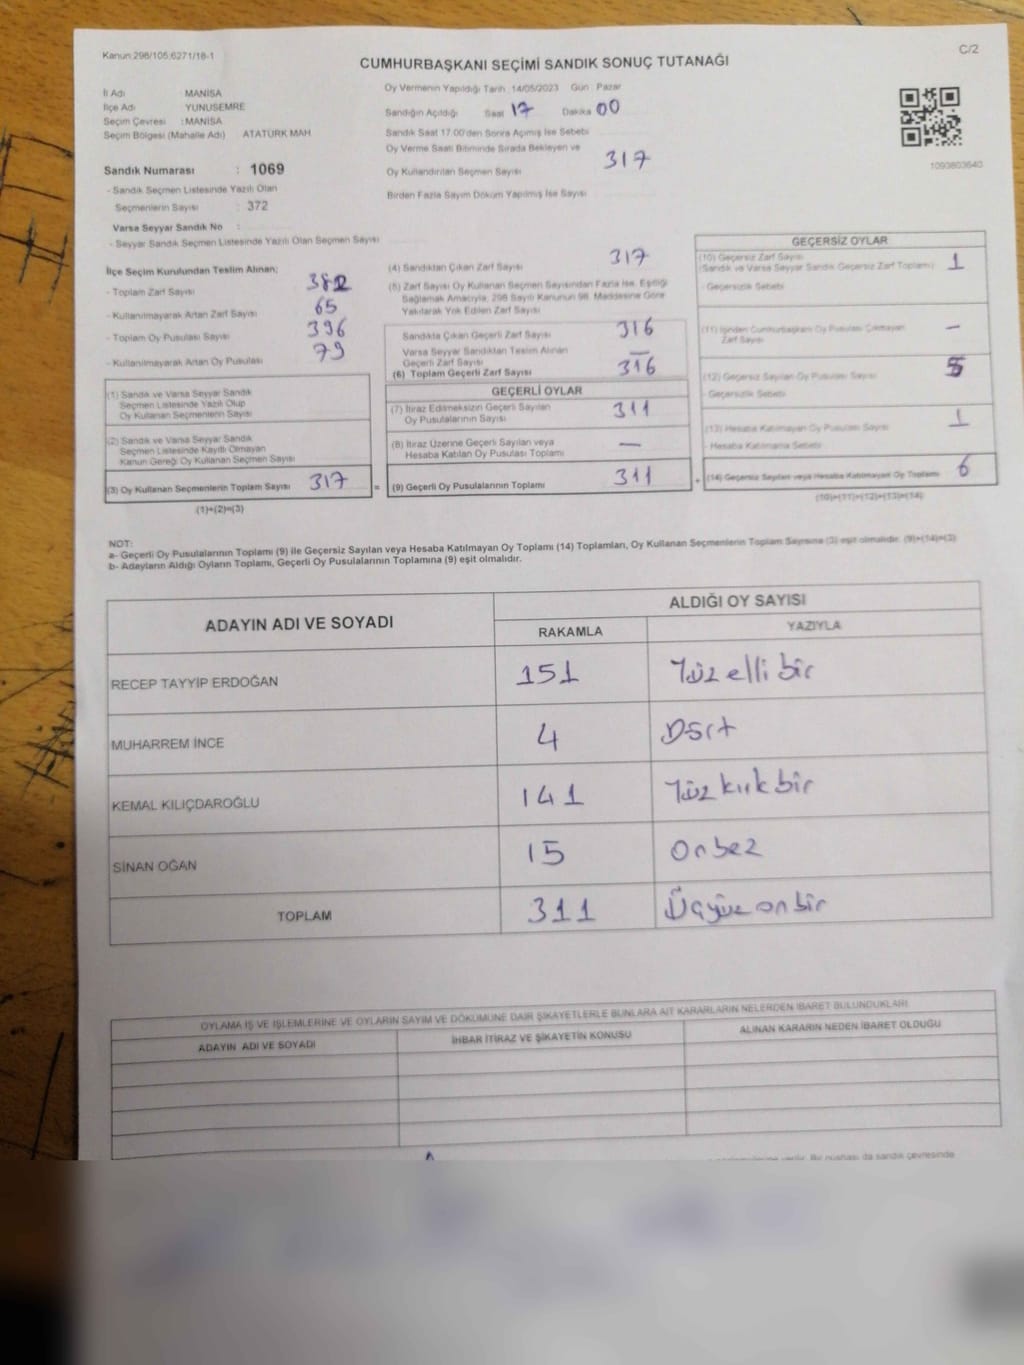 Kanun:298/105;6271/18-1
C/2
CUMHURBAŞKANI SEÇİMİ SANDIK SONUÇ TUTANAĞI
İl Adı MANİSA
İlçe Adı YUNUSEMRE
Seçim Çevresi : MANİSA
Seçim Bölgesi (Mahalle Adı) ATATÜRK MAH
Sandık Numarası : 1069
- Sandık Seçmen Listesinde Yazılı Olan
Seçmenlerin Sayısı : 372
Varsa Seyyar Sandık No :
- Seyyar Sandık Seçmen Listesinde Yazılı Olan Seçmen Sayısı
Oy Vermenin Yapıldığı Tarih : 14/05/2023 Gün : Pazar
Sandığın Açıldığı Saat 17 Dakika 00
Sandık Saat 17.00'den Sonra Açılmış İse Sebebi
Oy Verme Saati Bitiminde Sırada Bekleyen ve
Oy Kullandırılan Seçmen Sayısı 317
Birden Fazla Sayım Döküm Yapılmış İse Sayısı
1093803640
İlçe Seçim Kurulundan Teslim Alınan;
- Toplam Zarf Sayısı 382
- Kullanılmayarak Artan Zarf Sayısı 65
- Toplam Oy Pusulası Sayısı 396
- Kullanılmayarak Artan Oy Pusulası 79
(1) Sandık ve Varsa Seyyar Sandık
Seçmen Listesinde Yazılı Olup
Oy Kullanan Seçmenlerin Sayısı
(2) Sandık ve Varsa Seyyar Sandık
Seçmen Listesinde Kayıtlı Olmayan
Kanun Gereği Oy Kullanan Seçmen Sayısı
(3) Oy Kullanan Seçmenlerin Toplam Sayısı 317 =
(1)+(2)=(3)
(4) Sandıktan Çıkan Zarf Sayısı 317
(5) Zarf Sayısı Oy Kullanan Seçmen Sayısından Fazla İse, Eşitliği
Sağlamak Amacıyla, 298 Sayılı Kanunun 98. Maddesine Göre
Yakılarak Yok Edilen Zarf Sayısı
Sandıkta Çıkan Geçerli Zarf Sayısı 316
Varsa Seyyar Sandıktan Teslim Alınan
Geçerli Zarf Sayısı —
(6) Toplam Geçerli Zarf Sayısı 316
GEÇERLİ OYLAR
(7) İtiraz Edilmeksizin Geçerli Sayılan
Oy Pusulalarının Sayısı 311
(8) İtiraz Üzerine Geçerli Sayılan veya
Hesaba Katılan Oy Pusulası Toplamı —
(9) Geçerli Oy Pusulalarının Toplamı 311 +
GEÇERSİZ OYLAR
(10) Geçersiz Zarf Sayısı
(Sandık ve Varsa Seyyar Sandık Geçersiz Zarf Toplamı) 1
- Geçersizlik Sebebi
(11) İçinden Cumhurbaşkanı Oy Pusulası Çıkmayan
Zarf Sayısı —
(12) Geçersiz Sayılan Oy Pusulası Sayısı
- Geçersizlik Sebebi
(13) Hesaba Katılmayan Oy Pusulası Sayısı 1
- Hesaba Katılmama Sebebi
(14) Geçersiz Sayılan veya Hesaba Katılmayan Oy Toplamı 6
(10)+(11)+(12)+(13)=(14)
NOT:
a- Geçerli Oy Pusulalarının Toplamı (9) ile Geçersiz Sayılan veya Hesaba Katılmayan Oy Toplamı (14) Toplamları, Oy Kullanan Seçmenlerin Toplam Sayısına (3) eşit olmalıdır. (9)+(14)=(3)
b- Adayların Aldığı Oyların Toplamı, Geçerli Oy Pusulalarının Toplamına (9) eşit olmalıdır.
ADAYIN ADI VE SOYADI
ALDIĞI OY SAYISI
RAKAMLA YAZIYLA
RECEP TAYYİP ERDOĞAN 151 Yüz elli bir
MUHARREM İNCE 4 Dört
KEMAL KILIÇDAROĞLU 141 Yüz kırk bir
SİNAN OĞAN 15 Onbeş
TOPLAM 311 Üçyüz on bir
OYLAMA İŞ VE İŞLEMLERİNE VE OYLARIN SAYIM VE DÖKÜMÜNE DAİR ŞİKAYETLERLE BUNLARA AİT KARARLARIN NELERDEN İBARET BULUNDUKLARI
ADAYIN ADI VE SOYADI İHBAR İTİRAZ VE ŞİKAYETİN KONUSU ALINAN KARARIN NEDEN İBARET OLDUĞU
verilir. Bir nüshası da sandık çevresinde